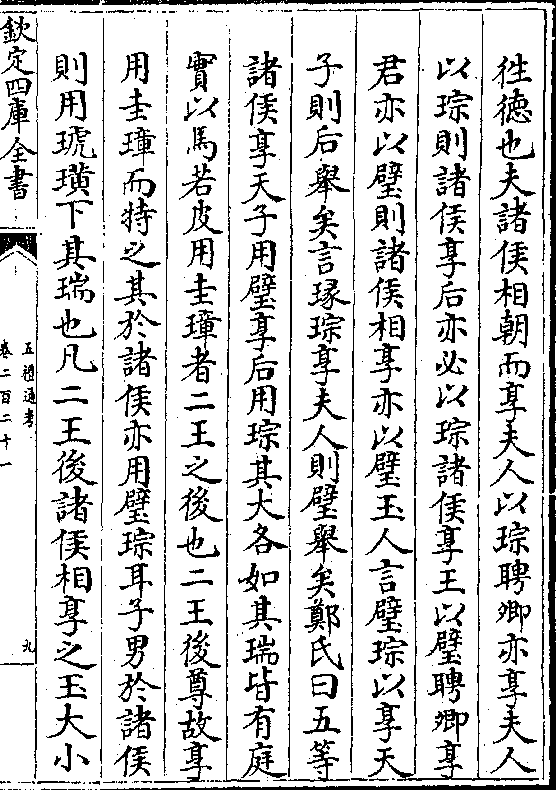 徃徳也夫諸侯相朝而享夫人以琮聘卿亦享夫人
以琮則諸侯享后亦必以琮諸侯享王以璧聘卿享
君亦以璧則諸侯相享亦以璧玉人言璧琮以享天
子則后舉矣言瑑琮享夫人則璧舉矣鄭氏曰五等
諸侯享天子用璧享后用琮其大各如其瑞皆有庭
實以馬若皮用圭璋者二王之後也二王後尊故享
用圭璋而特之其於諸侯亦用璧琮耳子男於諸侯
則用琥璜下其瑞也凡二王後諸侯相享之玉大小
欽定四庫全書
五禮通考
卷二百二十一
九